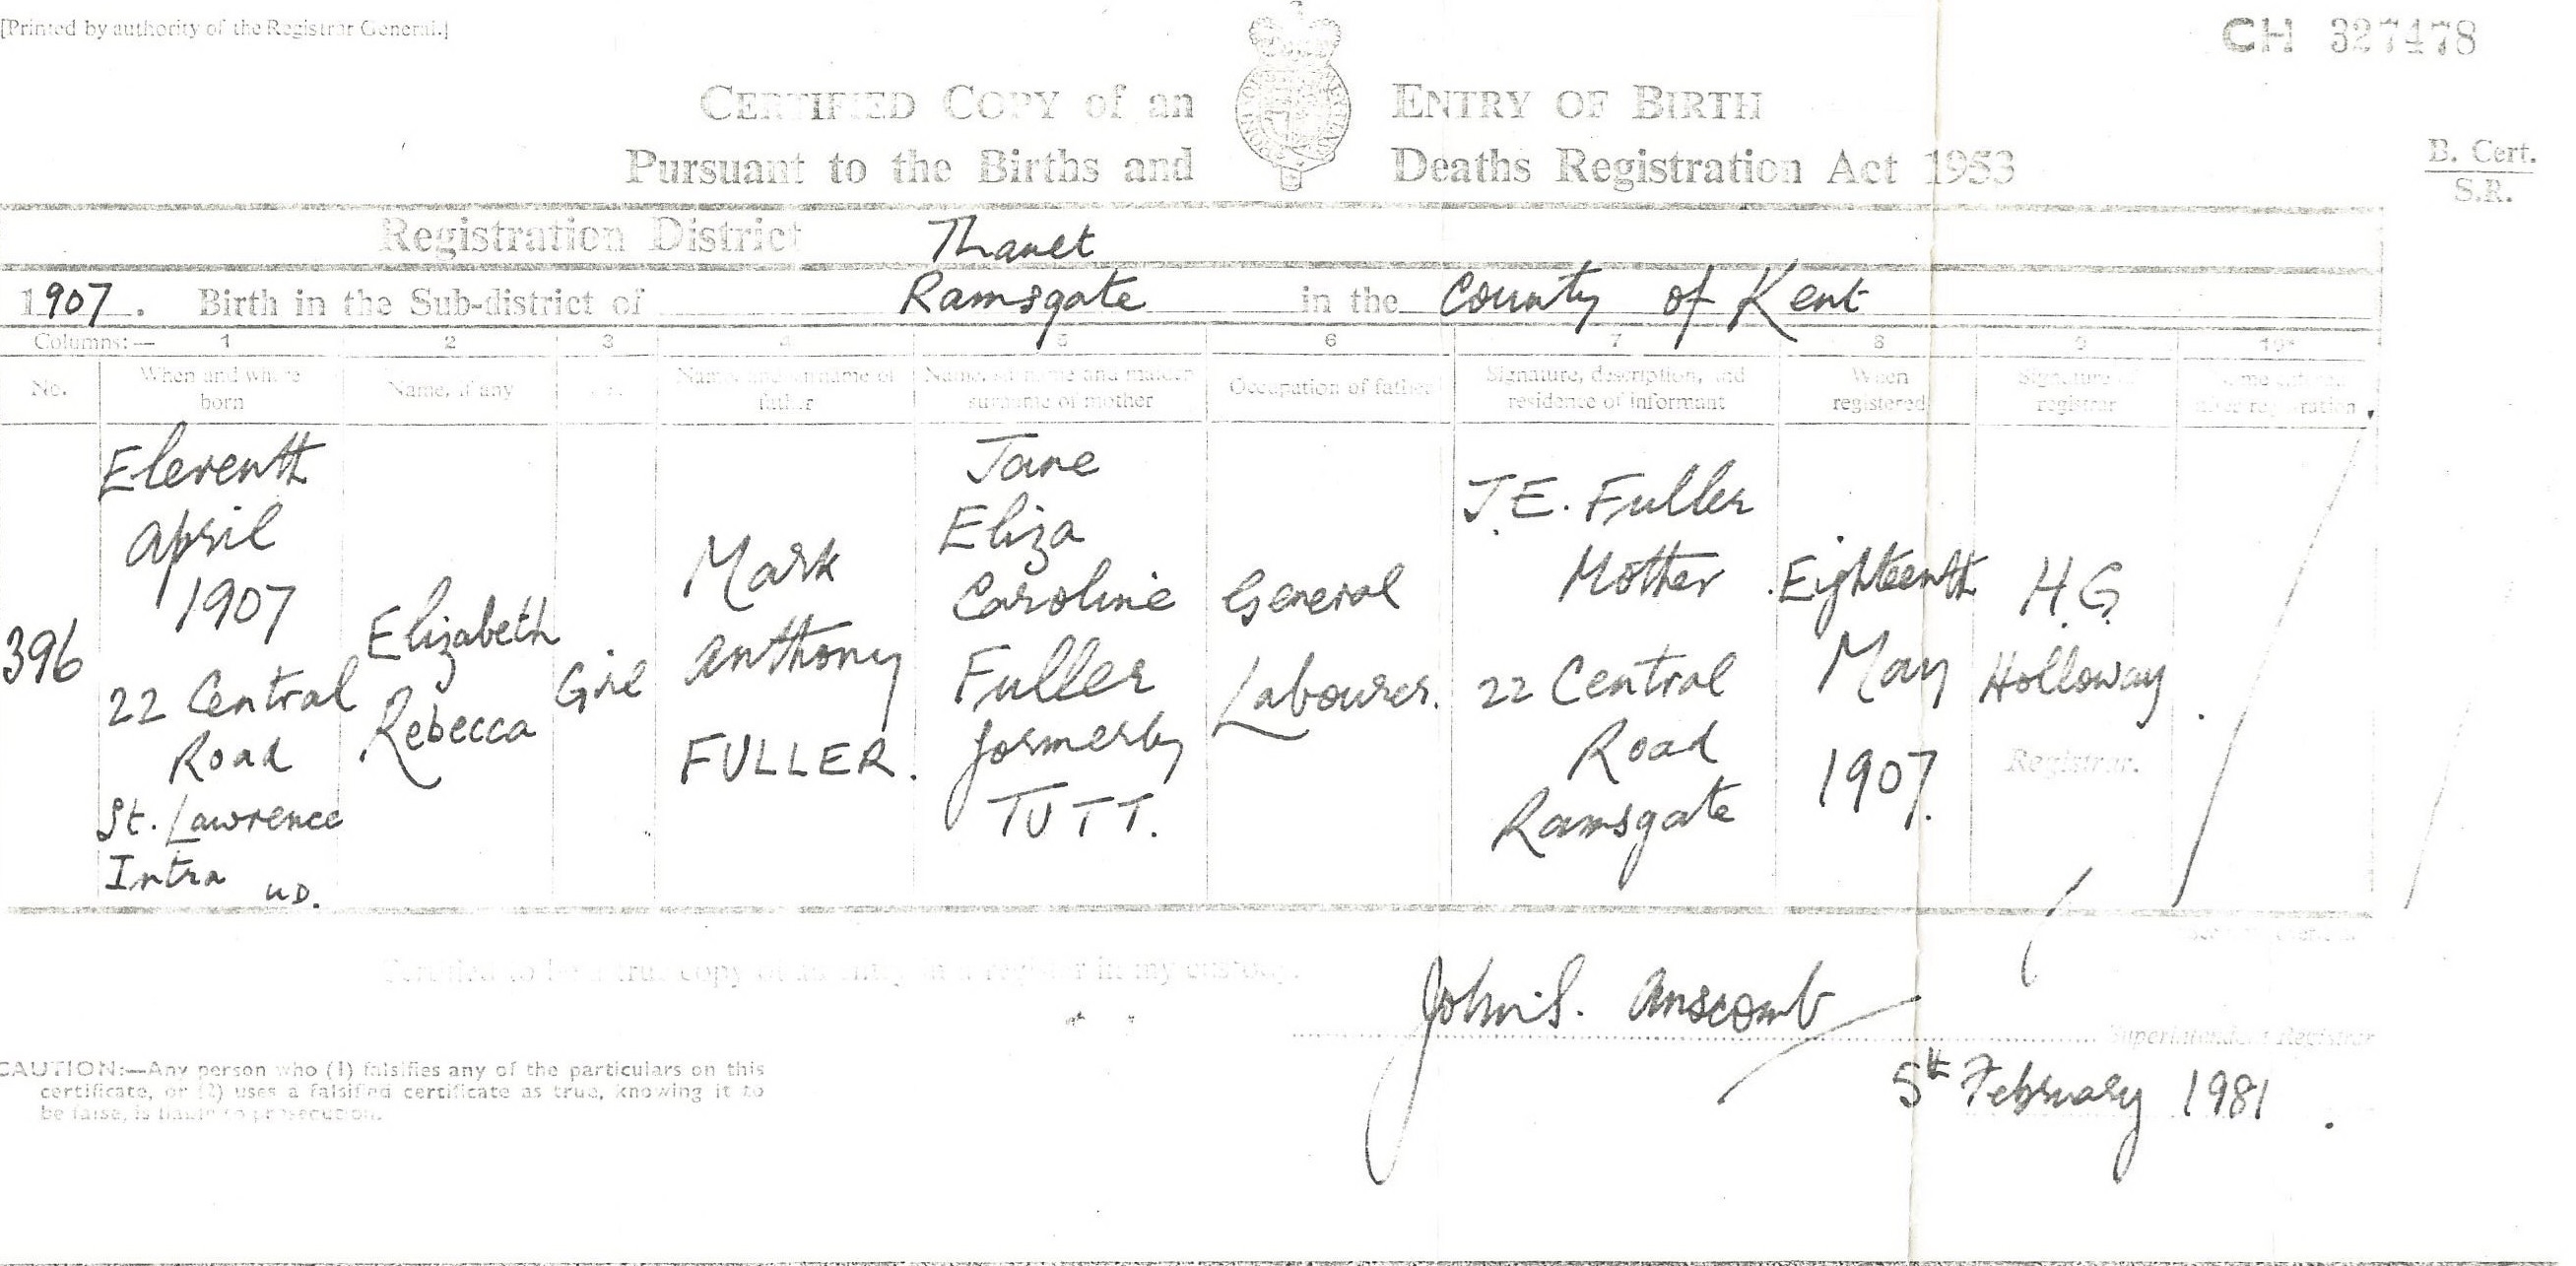 [Printed by authority of the Registrar General.]
CH 327478
CERTIFIED COPY of an ENTRY OF BIRTH
Pursuant to the Births and Deaths Registration Act 1953
B. Cert.
S.R.
Registration District Thanet
1907. Birth in the Sub-district of Ramsgate in the County of Kent
Columns:— 1 2 3 4 5 6 7 8 9 10*
No.
When and where
born
Name, if any
Name, and surname of
father
Name, surname and maiden
surname of mother
Occupation of father
Signature, description, and
residence of informant
When
registered
Signature of
registrar
registration
396
Eleventh
April
1907
22 Central
Road
St. Lawrence
Intra U.D.
Elizabeth
Rebecca
Girl
Mark
Anthony
FULLER.
Jane
Eliza
Caroline
Fuller
formerly
TUTT.
General
Labourer.
J.E. Fuller
Mother
22 Central
Road
Ramsgate
Eighteenth
May
1907.
H.G.
Holloway
Registrar.
Certified to be a true copy of an entry in a register in my custody.
John S. Anscomb
Superintendent Registrar
5th February 1981
CAUTION:—Any person who (1) falsifies any of the particulars on this
certificate, or (2) uses a falsified certificate as true, knowing it to
be false, is liable to prosecution.